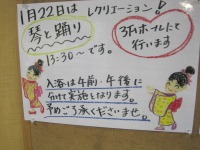 1月22日は レクリエーション!
琴と踊り
13:30~です。
3Fホールにて
行います
入浴は午前・午後に
分けて実施となります。
予めご了承くださいませ。